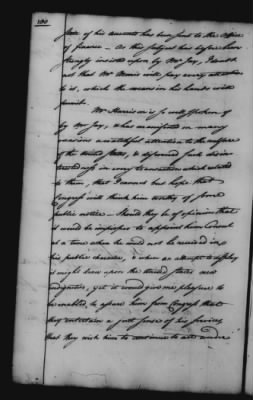 100
State of his accounts has been sent to the office
of finance – As this subject has before been
strongly insisted upon by Mr Jay, I doubt
not that Mr Morris will pay every attention
to it, which the means in his hands will
permit.
Mr Harrison is so well spoken of
by Mr Jay, & has manifested in many
occasions a watchful attention to the welfare
of the United States, & displayed such disin-
terestedness in every transaction which related
to them, that I cannot but hope that
Congress will think him worthy of some
public notice – Should they be of opinion that
it would be improper to appoint him Consul
at a time when he could not be received in
his public character, & when an attempt to display
it might bring upon the United States new
indignities, yet it would give me pleasure to
be enabled, to assure him from Congress that
they entertain a just sense of his services,
that they wish him to continue to act under